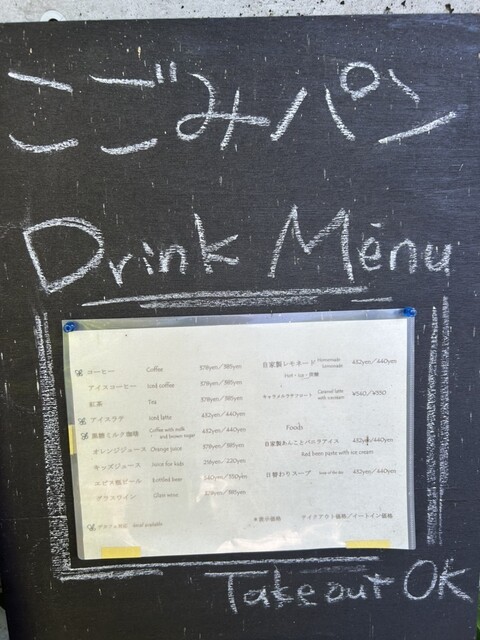 こごみパン
Drink Menu
コーヒー Coffee 378yen/385yen
アイスコーヒー Iced coffee 378yen/385yen
紅茶 Tea 378yen/385yen
アイスラテ Iced latte 432yen/440yen
黒糖ミルク珈琲 Coffee with milk and brown sugar 432yen/440yen
オレンジジュース Orange juice 378yen/385yen
キッズジュース Juice for kids 216yen/220yen
エビス瓶ビール Bottled beer 540yen/550yen
グラスワイン Glass wine 378yen/385yen
自家製レモネード Homemade lemonade 432yen/440yen
Hot・Ice・炭酸
キャラメルラテフロート Caramel latte with icecream ¥540/¥550
Foods
自家製あんことバニラアイス 432yen/440yen
Red bean paste with ice cream
日替わりスープ Soup of the day 432yen/440yen
＊表示価格 テイクアウト価格/イートイン価格
Take out OK